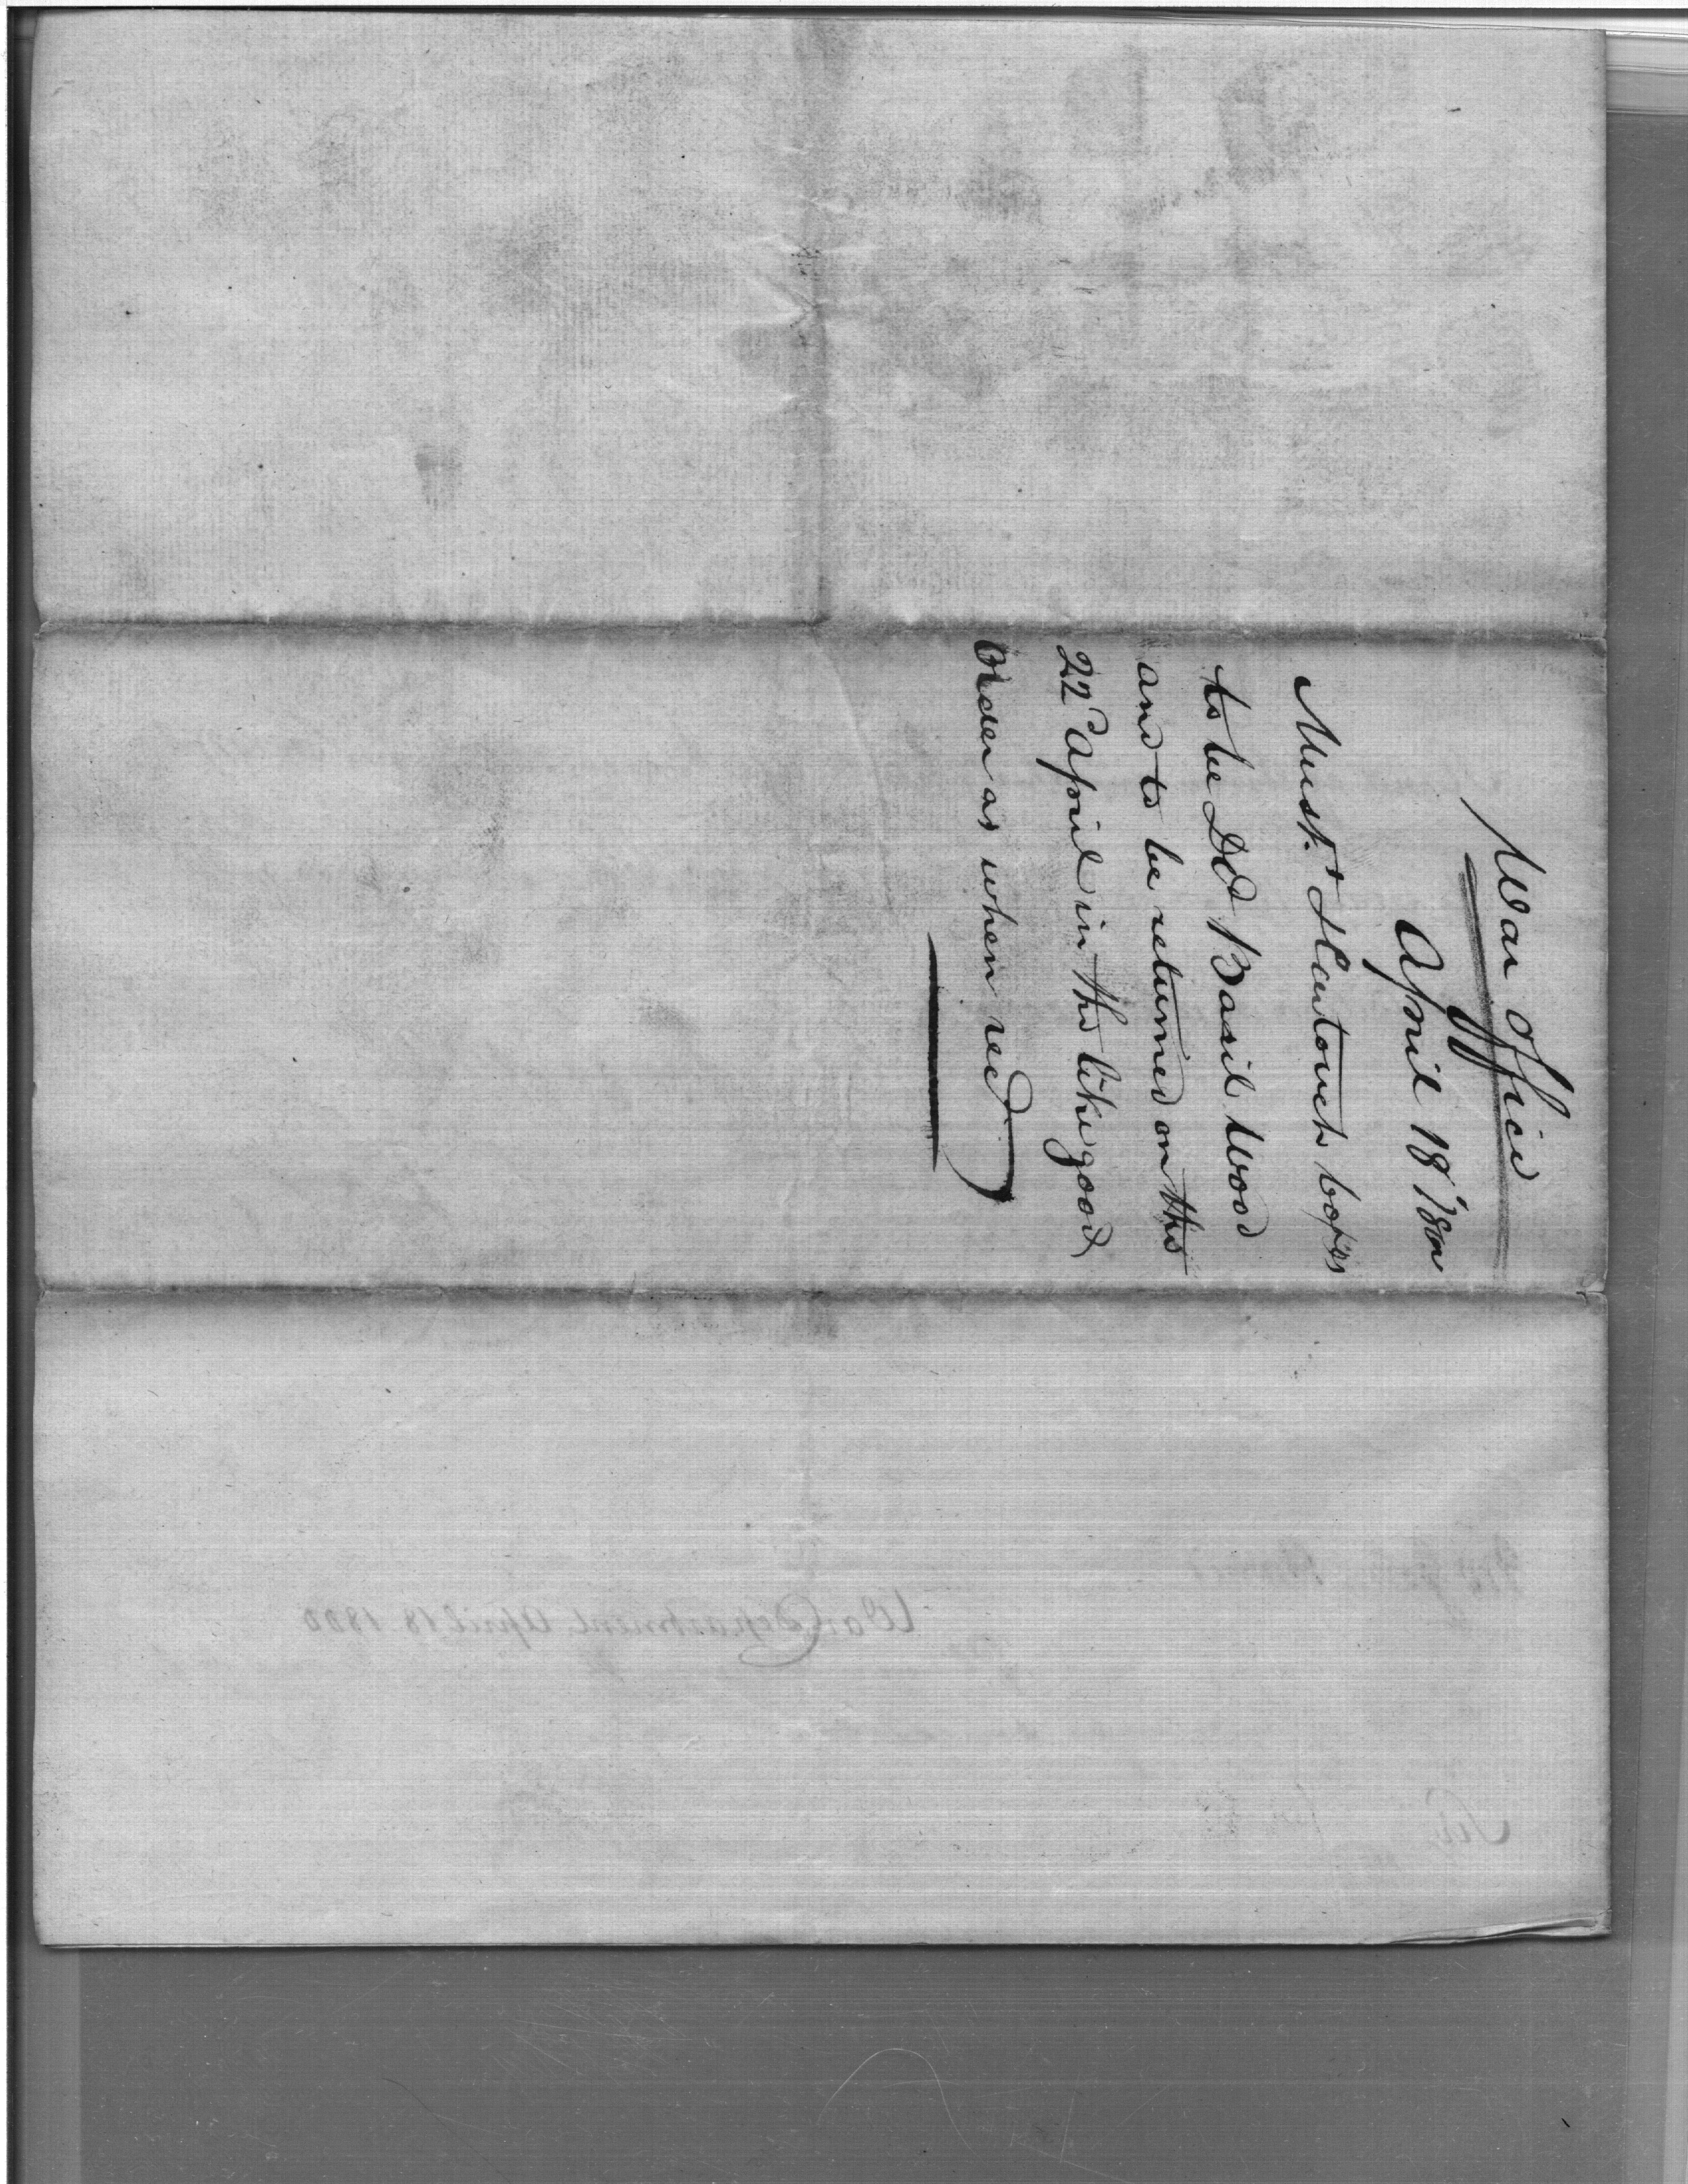 War Office
April 18 1800
Musk.ts & Cartouch boxes
to be Dd Basil Wood
and to be returned on the
22d April in the like good
Order as when recd.
War Department April 18 1800
Sir,